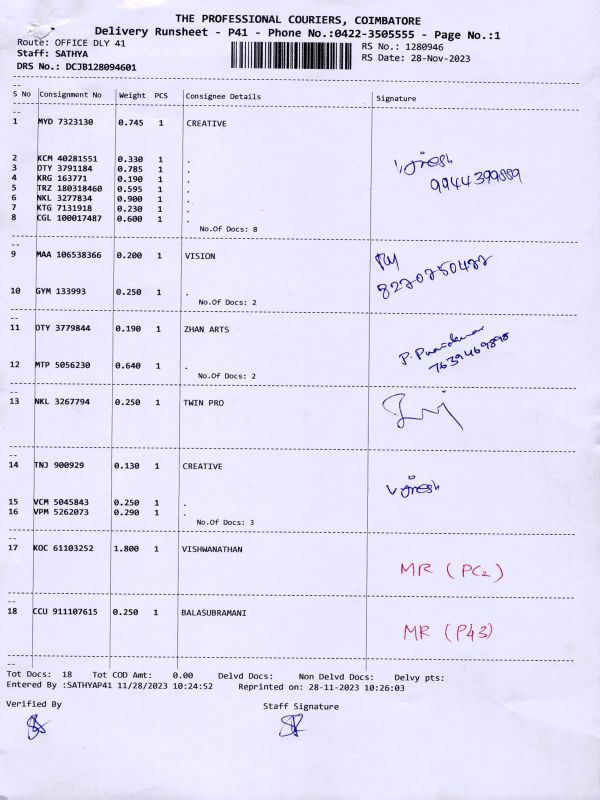 THE PROFESSIONAL COURIERS, COIMBATORE
Delivery Runsheet - P41 - Phone No.:0422-3505555 - Page No.:1
Route: OFFICE DLY 41 RS No.: 1280946
Staff: SATHYA RS Date: 28-Nov-2023
DRS No.: DCJB128094601
S No Consignment No Weight PCS Consignee Details Signature
1 MYD 7323130 0.745 1 CREATIVE
2 KCM 40281551 0.330 1 .
3 OTY 3791184 0.785 1 .
4 KRG 163771 0.190 1 .
5 TRZ 180318460 0.595 1 .
6 NKL 3277834 0.900 1 .
7 KTG 7131918 0.230 1 .
8 CGL 100017487 0.600 1 .
No.Of Docs: 8
9944399889
9 MAA 106538366 0.200 1 VISION
10 GYM 133993 0.250 1 .
No.Of Docs: 2
11 OTY 3779844 0.190 1 ZHAN ARTS
12 MTP 5056230 0.640 1 .
No.Of Docs: 2
13 NKL 3267794 0.250 1 TWIN PRO
14 TNJ 900929 0.130 1 CREATIVE
15 VCM 5045843 0.250 1 .
16 VPM 5262073 0.290 1 .
No.Of Docs: 3
17 KOC 61103252 1.800 1 VISHWANATHAN
MR (PC2)
18 CCU 911107615 0.250 1 BALASUBRAMANI
MR (P43)
Tot Docs: 18 Tot COD Amt: 0.00 Delvd Docs: Non Delvd Docs: Delvy pts:
Entered By :SATHYAP41 11/28/2023 10:24:52 Reprinted on: 28-11-2023 10:26:03
Verified By Staff Signature